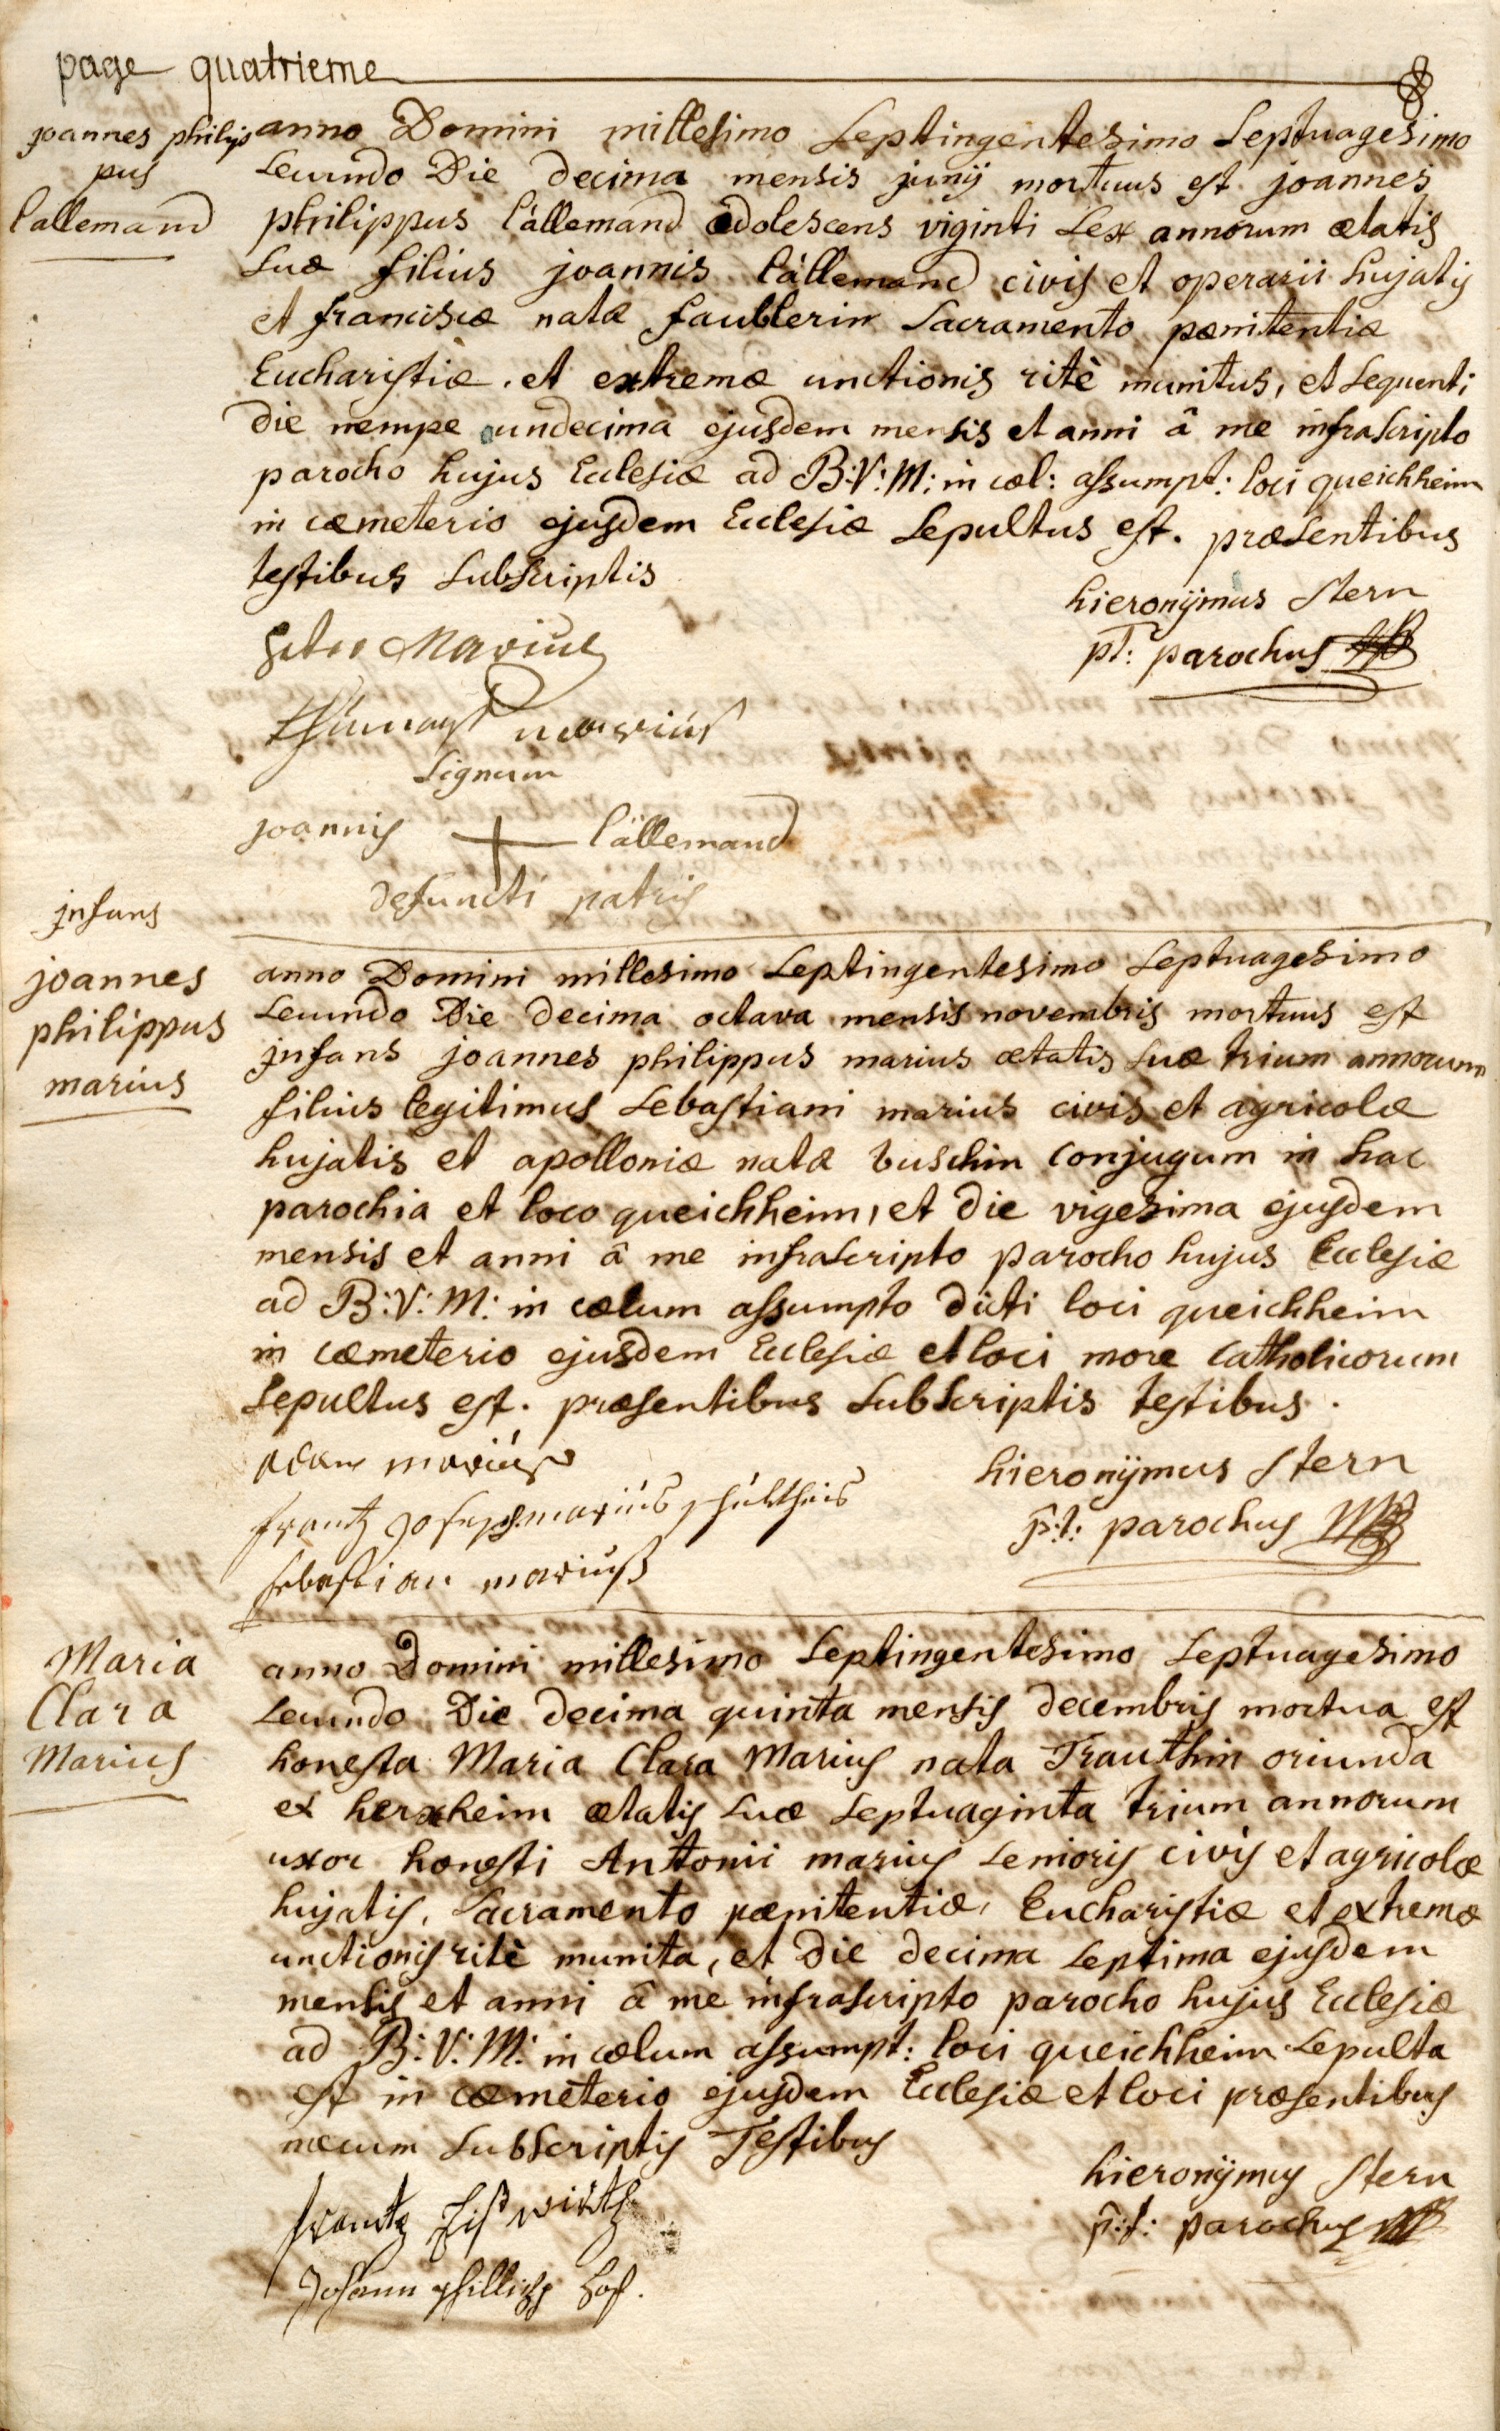 page quatrieme
joannes philip
pus
lallemand
anno Domini millesimo Septingentesimo Septuagesimo
Secundo Die decima mensis junij mortuus est joannes
philippus l'allemand adolescens viginti Sex annorum ætatis
Suæ filius joannis l'allemand civis et operarii hujatis
et franciscæ natæ faublerin Sacramento pænitentiæ
Eucharistiæ. et extremæ unctionis ritè munitus, et Sequenti
die nempe undecima ejusdem mensis et anni â me infraScripto
parocho hujus Ecclesiæ ad B:V:M: in cæl: assumpt: loci queichheim
in cæmeterio ejusdem Ecclesiæ Sepultus est. præsentibus
testibus SubScriptis
hieronijmus Stern
pt: parochus
Peter Marius
marius
Signum
joannis + l'allemand
defuncti patris
jnfans
joannes
philippus
marius
anno Domini millesimo Septingentesimo Septuagesimo
Secundo Die decima octava mensis novembris mortuus est
jnfans joannes philippus marius ætatis Suæ trium annorum
filius legitimus Sebastiani marius civis et agricolæ
hujatis et apolloniæ natæ buschin Conjugum in hac
parochia et loco queichheim, et die vigesima ejusdem
mensis et anni â me infraScripto parocho hujus Ecclesiæ
ad B:V:M: in cælum assumpto dicti loci queichheim
in cæmeterio ejusdem Ecclesiæ et loci more Catholicorum
Sepultus est. præsentibus SubScriptis testibus.
adam mariuß
frantz Joseph marius schultheis
sebastian mariuß
hieronijmus Stern
p:t: parochus
Maria
Clara
Marius
anno Domini millesimo Septingentesimo Septuagesimo
Secundo Die decima quinta mensis decembris mortua est
honesta Maria Clara Marius nata Trauthin oriunda
ex herxheim ætatis Suæ Septuaginta trium annorum
uxor honesti Antonii marius Senioris civis et agricolæ
hujatis, Sacramento pænitentiæ, Eucharistiæ et extremæ
unctionis ritè munita, et die decima Septima ejusdem
mensis et anni â me infraScripto parocho hujus Ecclesiæ
ad B:V:M: in cælum assumpt: loci queichheim Sepulta
est in cæmeterio ejusdem Ecclesiæ et loci præsentibus
mecum SubScriptis Testibus
hieronijmus Stern
p:t: parochus
frantz
Johann phillipp